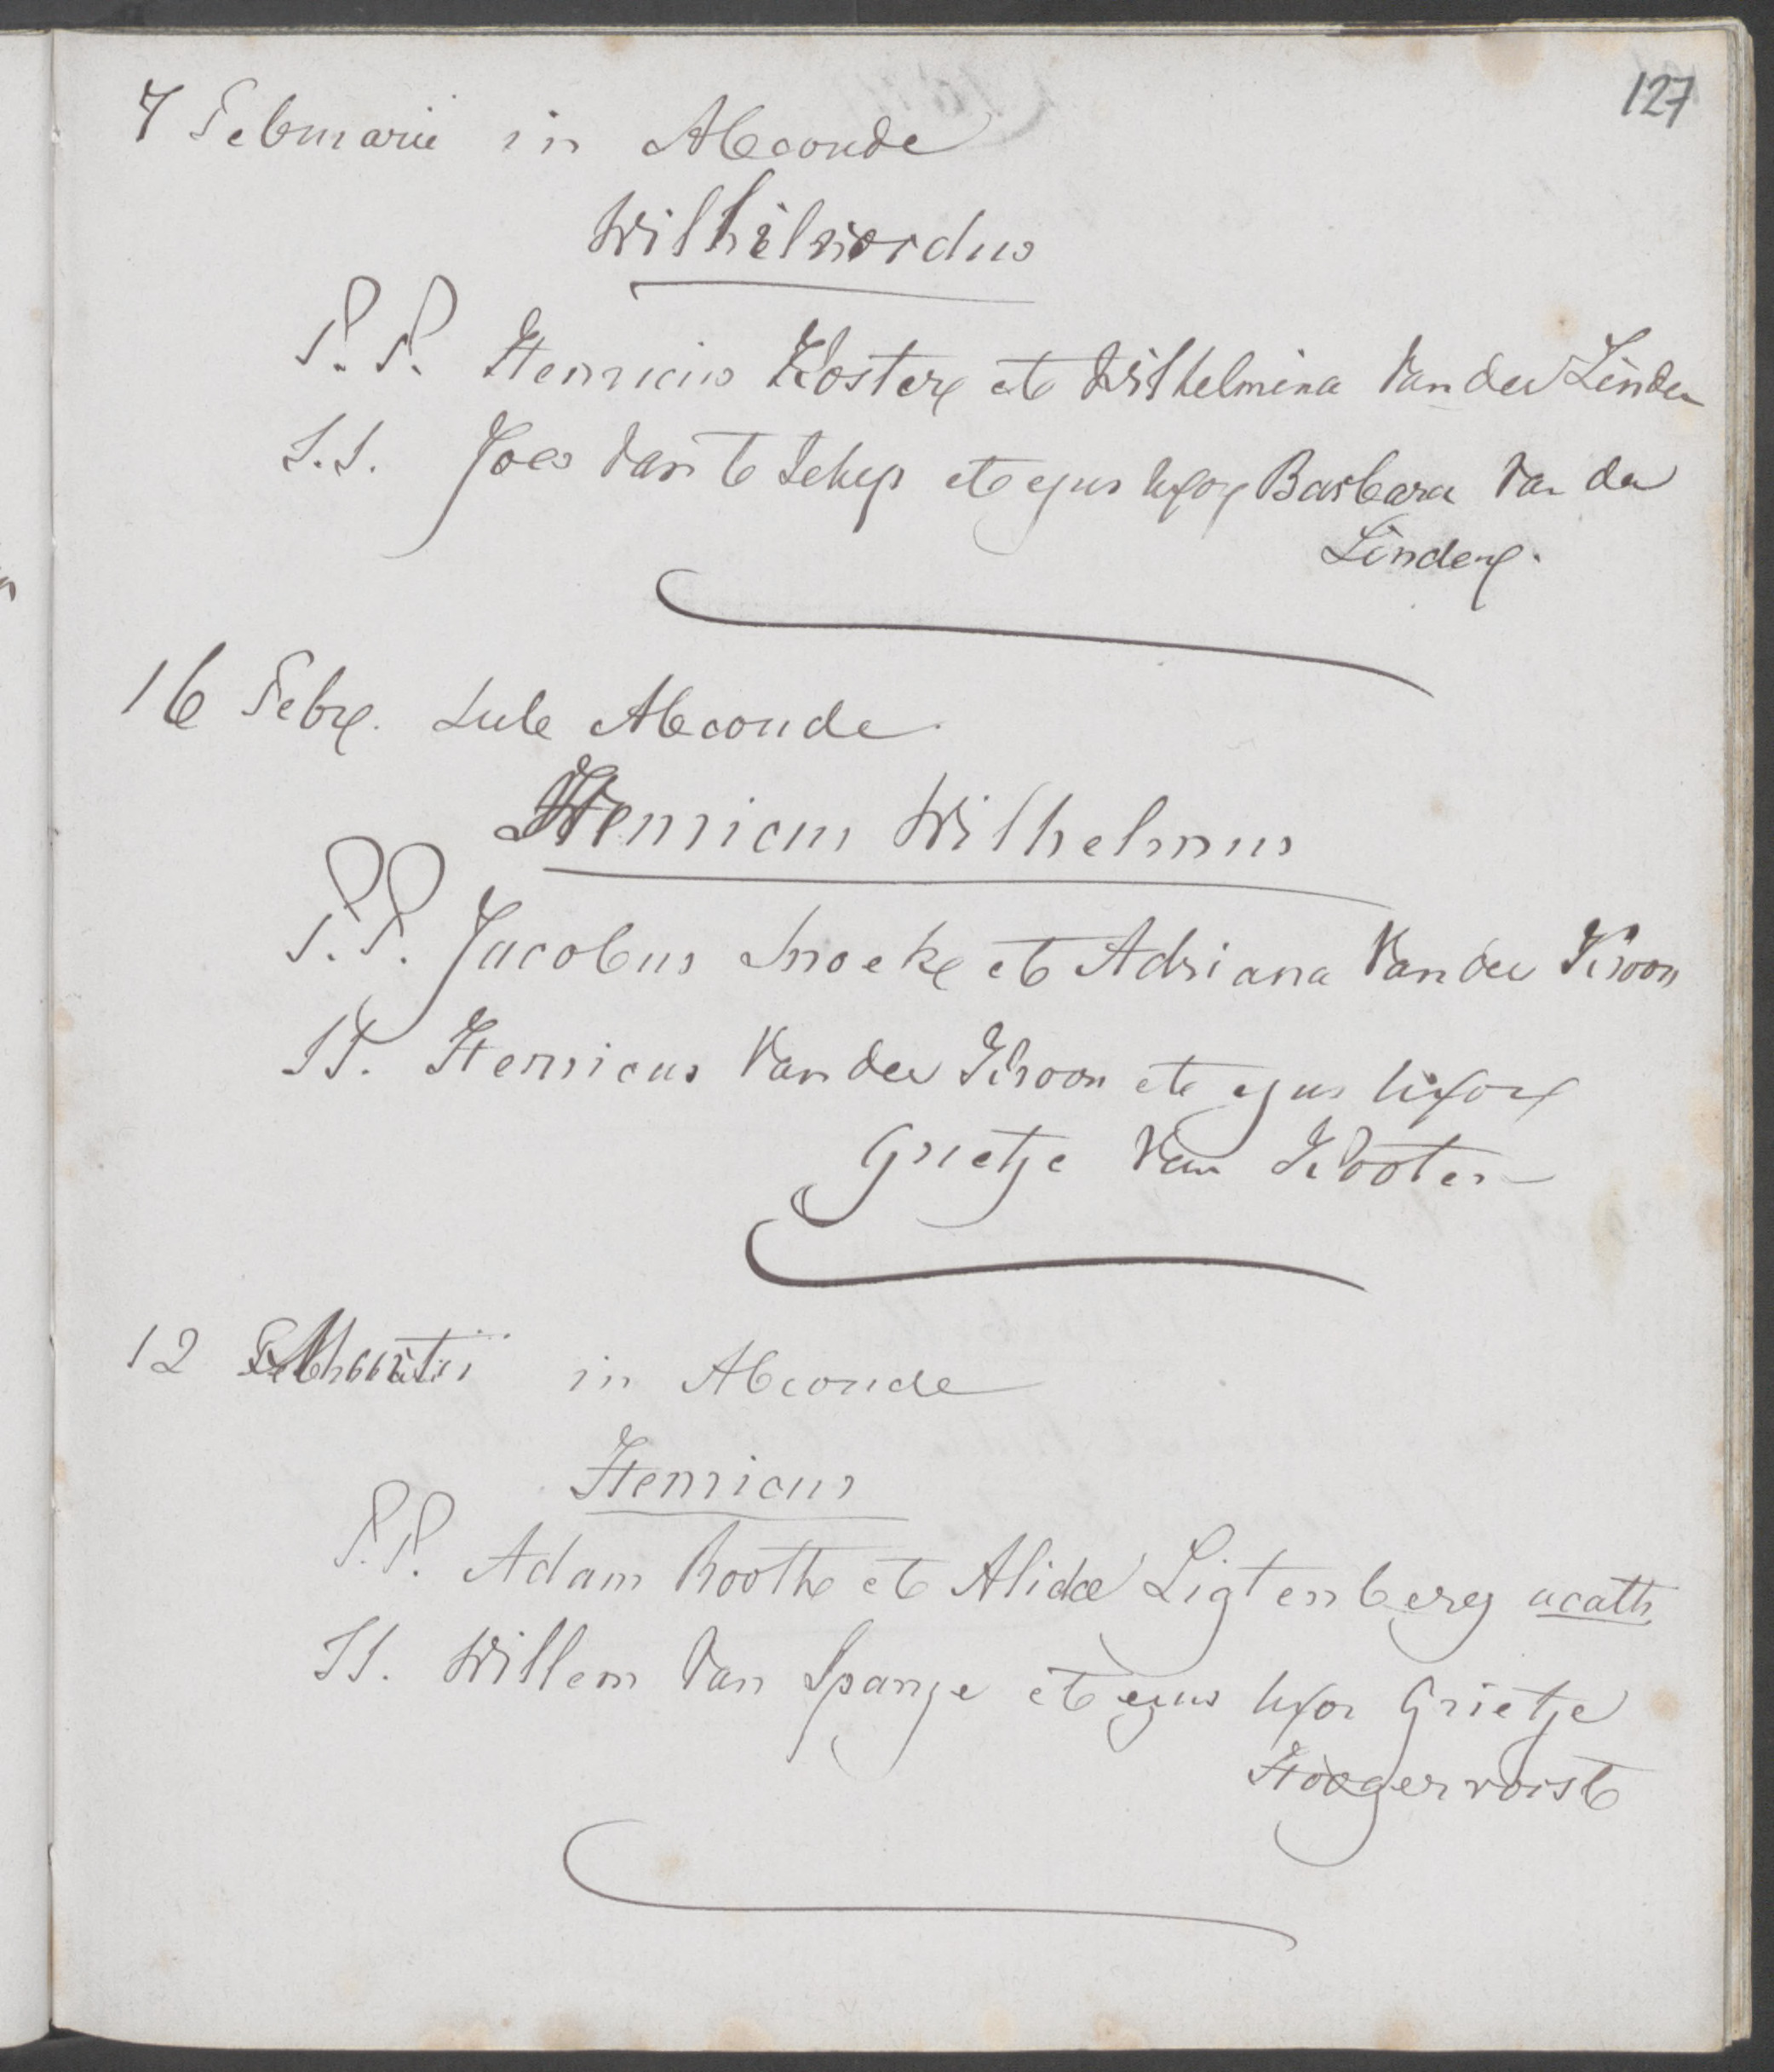 127
7 Februarii in Abconde
Wilhibrordus
P.P. Henricus Koster et Wilhelmina Van der Linden
S.S. Joes Van t Schip et ejus Uxor Barbara Van der
Linden.
16 Febr. Sub Abconde
Henricus Wilhelmus
P.P. Jacobus Snoek et Adriana Van der Kroon
SS. Henricus Van der Kroon et ejus Uxor
Grietje Van Klooter
12 Martii in Abconde
Henricus
P.P. Adam Rooth et Alida Ligtenberg acath.
SS. Willem Van Spanje et ejus Uxor Grietje
Hoogervorst